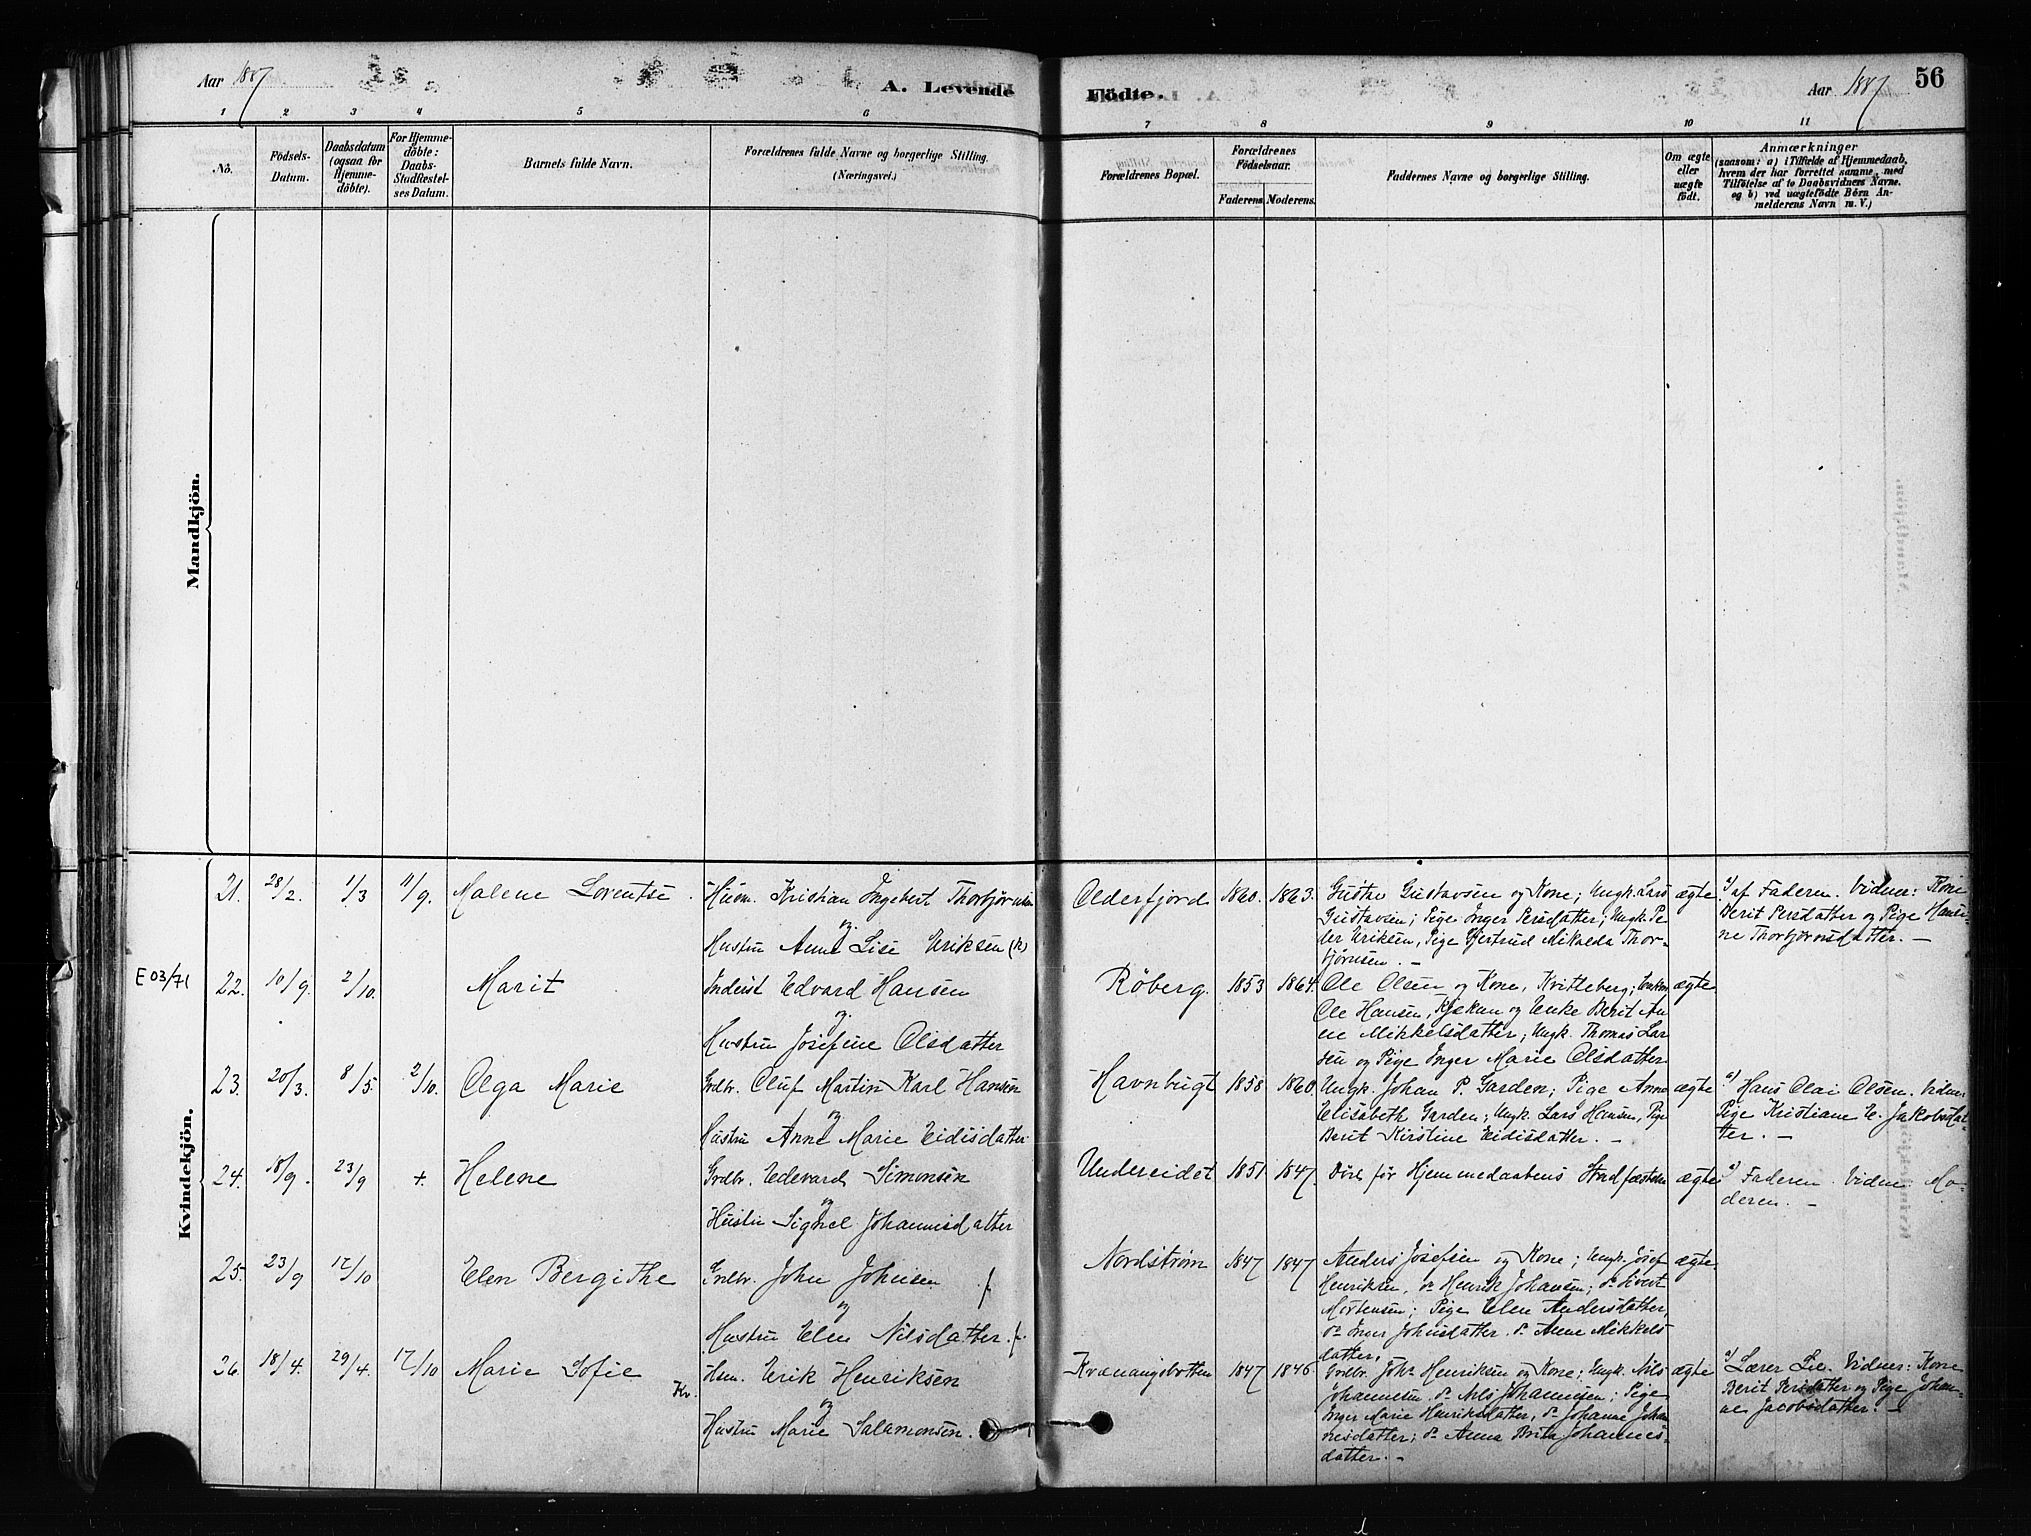 Aar 1887
A. Levende
Födte.
Aar 1887
56
1 2 3 4 5 6 7 8 9 10 11
No.
Födsels-
Datum.
Daabsdatum
(ogsaa for
Hjemme-
döbte).
For Hjemme-
döbte:
Daabs-
Stadfæstel-
ses Datum.
Barnets fulde Navn.
Forældrenes fulde Navne og borgerlige Stilling.
(Næringsvei.)
Forældrenes Bopæl.
Forældrenes
Födselsaar.
Faderens Moderens.
Faddernes Navne og borgerlige Stilling.
Om ægte
eller
uægte
födt.
Anmærkninger
(saasom: a) i Tilfælde af Hjemmedaab,
hvem der har forrettet samme, med
Tilföielse af to Daabsvidners Navne.
og b) ved uægtefödte Börn An-
melderens Navn m. V.)
Mandkjön.
Kvindekjön.
21. 28/2. 1/3 11/9. Malene Lorentse. Husm. Kristian Ingebert Thorbjørnsen
og
Hustru Anne Lise Eriksen (k)
Olderfjord 1860. 1863.
Gustav Gustavsen og Kone; Ungk. Lars
Gustavsen; Pige Inger Persdatter; Ungk. Pe-
der Eriksen, Pige Gjertrud Mikalda Thor-
bjørnsen. -
ægte
a) af Faderen. Vidner: Kone
Berit Persdatter og Pige Hansi-
ne Thorbjørnsdatter. -
E 03/71
22. 10/9. 2/10. Marit Inderst Edvard Hansen
og
Hustru Josefine Olsdatter
Røberg. 1853 1864.
Ole Olsen og Kone, Kvitteberg; Enkem.
Ole Hansen, Kjækan og Enke Berit An-
ne Mikkelsdatter; Ungk. Thomas Lar-
sen og Pige Inger Marie Olsdatter
ægte
23. 20/3. 8/5. 2/10. Olga Marie Grdbr. Oluf Martin Karl Hansen
og
Hustru Anne Marie Eidisdatter
Havnbugt 1858 1860.
Ungk. Johan P. Garden; Pige Anne
Elisabeth Garden; Ungk. Lars Hansen, Pige
Berit Kirstine Eidisdatter. -
ægte
a) Hans Olai Olsen. Vidner
Pige Kristiane E. Jakobsdat-
ter. -
24. 18/9. 23/9 +. Helene Grdbr. Edevard Simonsen
og
Hustru Signel Johannesdatter
Undereidet 1851 1847.
Død før Hjemmedaabens Stadfæstelse
ægte
a) Faderen. Vidne Mo-
deren. -
25. 23/9 12/10 Elen Bergithe Grdbr. John Johnsen
og
Hustru Elen Nilsdatter.
Nordstrøm 1847 1847
Anders Josefsen og Kone; Ungk. Josef
Henriksen, do Henrik Johansen; do Sivert
Mortensen; Pige Elen Andersdatter,
do Inger Johnsdatter. do Anne Mikkels
datter.
ægte.
26. 18/4. 29/4. 12/10 Marie Sofie
Kv.
Hsm. Erik Henriksen
og
Hustru Marie Salamonsen.
Kvænangsbotten 1847 1846
Grdbr. Johs Henriksen og Kone; Ungk. Nils
Johannesen do Nils Johannesen; Pige
Inger Marie Henriksdatter, do Johanne Johan
nesdatter; do Anna Brita Johannes-
datter. -
ægte
a) Lærer Lie. Vidner: Kone
Berit Persdatter og Pige Johan-
ne Jacobsdatter. -